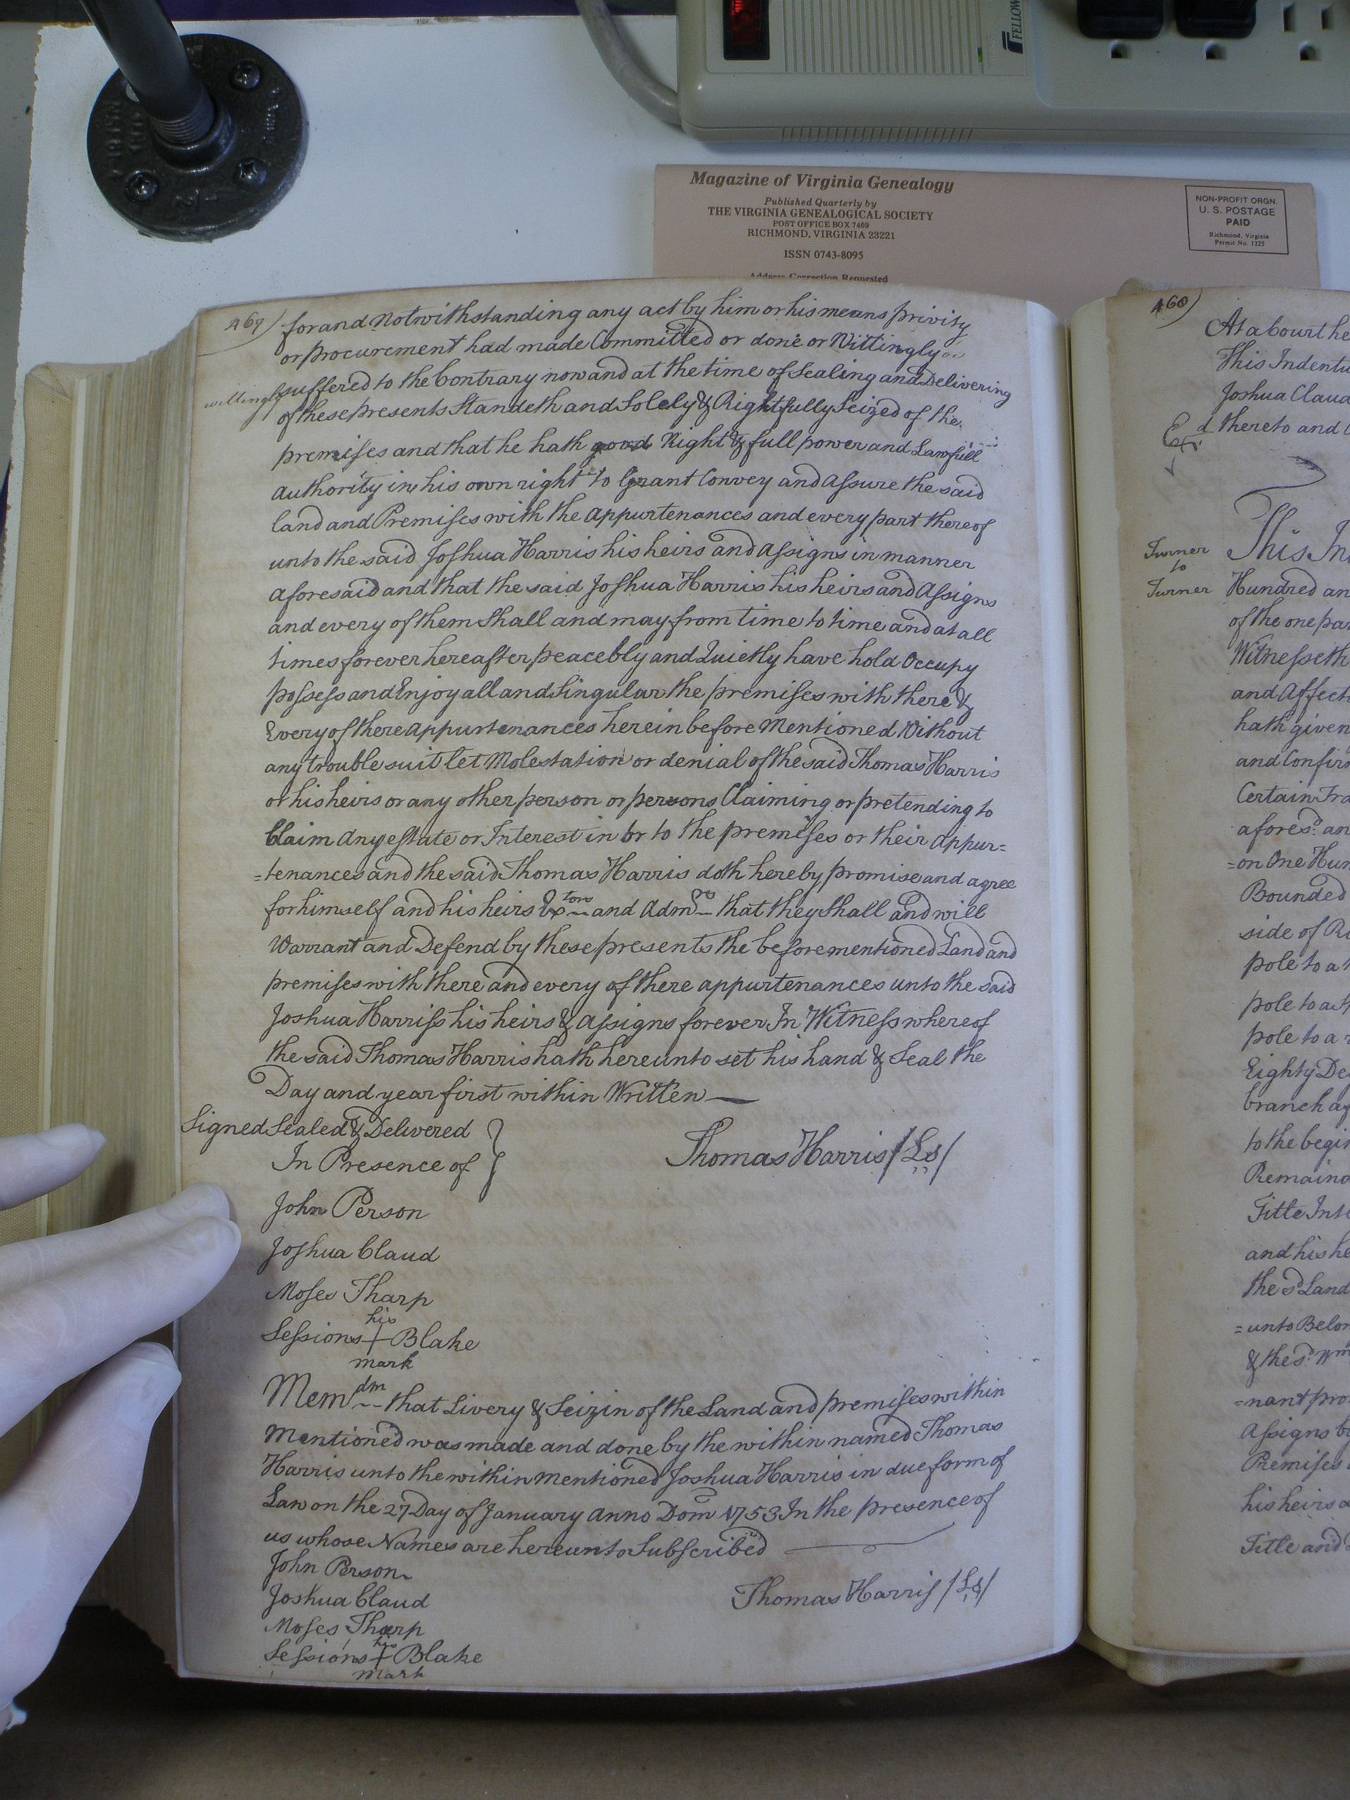 FELLOW
Magazine of Virginia Genealogy
Published Quarterly by
THE VIRGINIA GENEALOGICAL SOCIETY
POST OFFICE BOX 7469
RICHMOND, VIRGINIA 23221
ISSN 0743-8095
Address Correction Requested
NON-PROFIT ORGN.
U. S. POSTAGE
PAID
Richmond, Virginia
Permit No. 1325
467)
for and Notwithstanding any act by him or his means privity
or procurement had made Committed or done or Wittingly or
willingly suffered to the Contrary now and at the time of Sealing and Delivering
of these presents Standeth and Solely & Rightfully Seized of the
premises and that he hath good Right & full power and Lawfull
authority in his own right to Grant Convey and assure the said
land and Premises with the appurtenances and every part thereof
unto the said Joshua Harris his heirs and assigns in manner
aforesaid and that the said Joshua Harris his heirs and Assigns
and every of them Shall and may from time to time and at all
times forever hereafter peacebly and Quietly have hold Occupy
possess and Enjoy all and Singular the premises with there &
Every of there appurtenances herein before Mentioned Without
any trouble suit let Molestation or denial of the said Thomas Harris
or his heirs or any other person or persons Claiming or pretending to
Claim any estate or Interest in or to the premises or their appur=
=tenances and the said Thomas Harris doth hereby promise and agree
for himself and his heirs Extors and Admrs that they Shall and will
Warrant and Defend by these presents the before mentioned Land and
premises with there and every of there appurtenances unto the said
Joshua Harriss his heirs & assigns forever In Witness whereof
the said Thomas Harris hath hereunto set his hand & Seal the
Day and year first within Written
Signed Sealed & Delivered
In Presence of
Thomas Harris /Ls/
John Person
Joshua Claud
Moses Tharp
his
Sessions + Blake
mark
Memdm that Livery & Seizin of the Land and premises within
Mentioned was made and done by the within named Thomas
Harris unto the within mentioned Joshua Harris in due form of
Law on the 27 Day of January Anno Dom 1753 In the presence of
us whose Names are hereunto Subscribed
John Person
Joshua Claud
Thomas Harris /Ls/
Moses Tharp
his
Sessions + Blake
mark
468)
At a Court he
This Indentu
Joshua Claud
Exd thereto and
Turner
to
Turner
This In
Hundred an
of the one par
Witnesseth
and Affect
hath given
and Confir
Certain Tra
aforesd an
=on One Hun
Bounded
side of
pole to a
pole to a
pole to a
Eighty De
branch a
to the begin
Remaind
Title Inte
and his he
the sd Land
=unto Belon
& the sd Wm
=nant pro
Assigns
Premises
his heirs
Title and